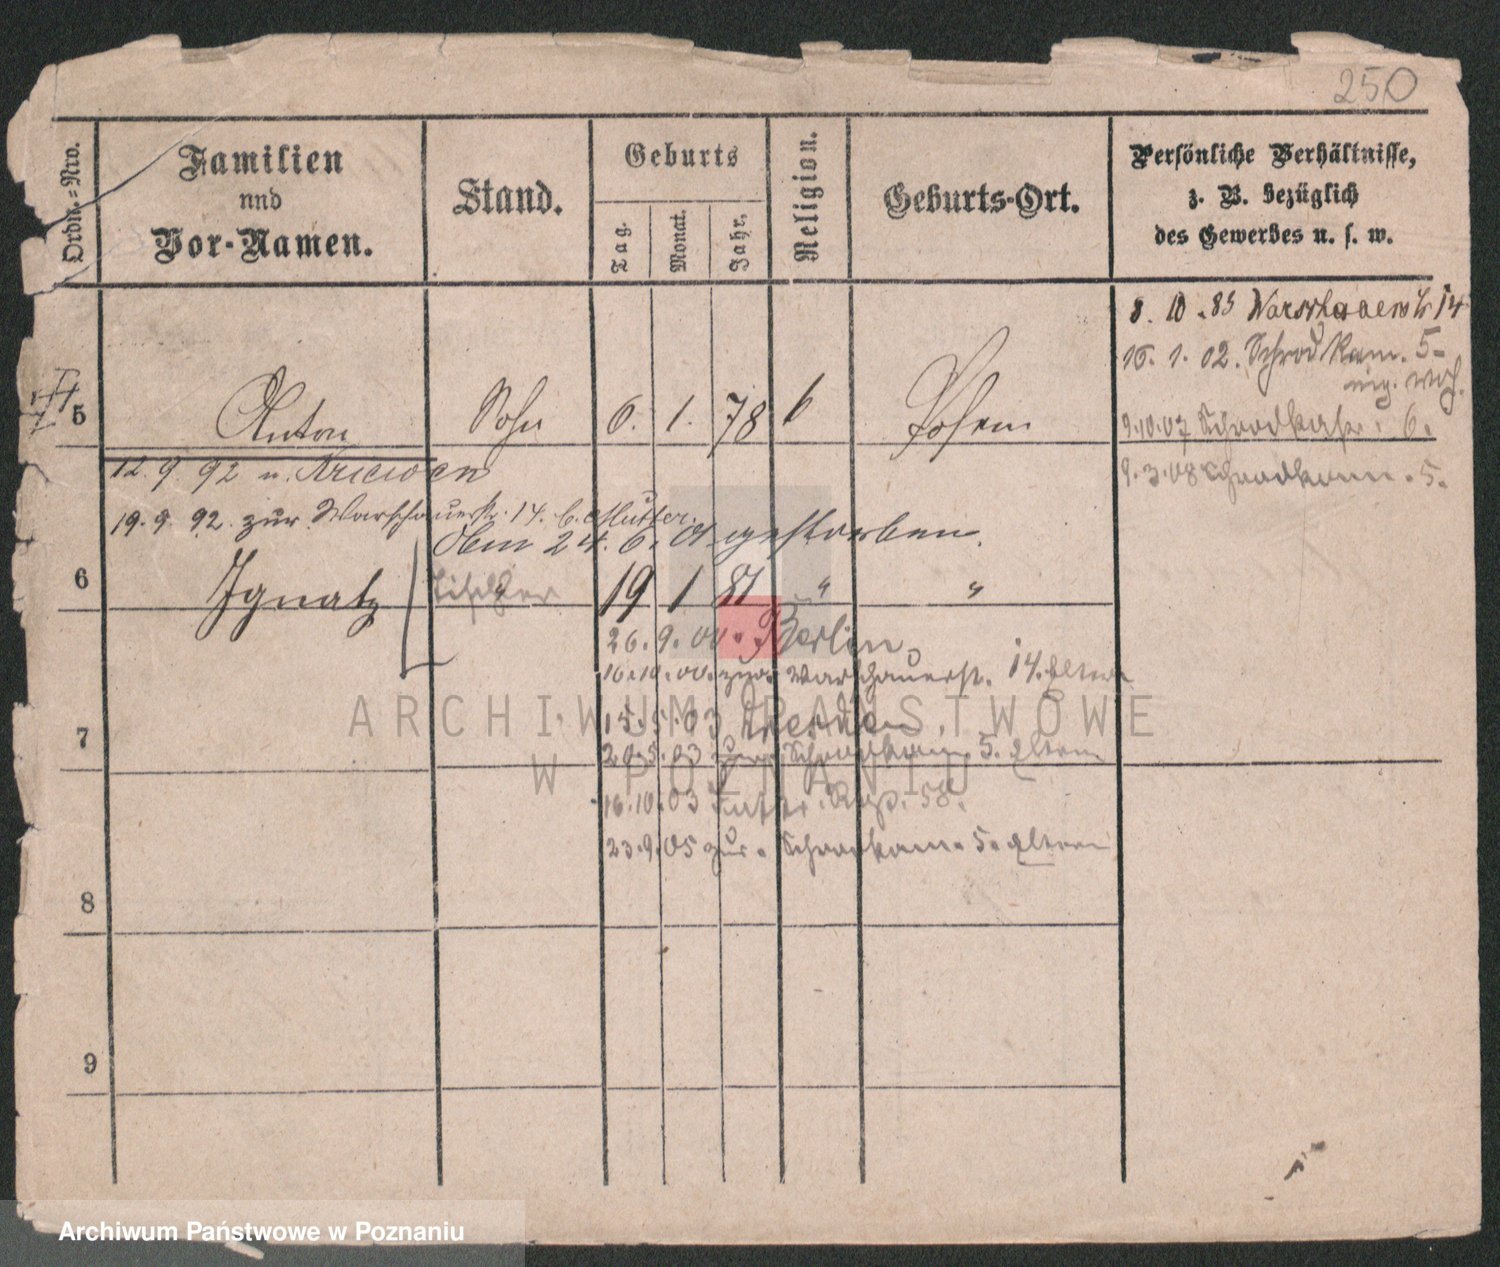 250
Ordn.=Nro.
Familien
und
Vor-Namen.
Stand.
Geburts
Tag.
Monat.
Jahr.
Religion.
Geburts-Ort.
Persönliche Verhältnisse,
z. B. bezüglich
des Gewerbes u. s. w.
8. 10. 85 Warschauerstr 14
15. 1. 02. Schrodkam. 5
5 Anton Sohn 6. 1. 78 k Posen
9.10.07 6.
9.3.08 Schrodkam. 5.
12. 9 92 n. Kriewen
19. 9. 92. zur Warschauerstr. 14. b. Mutter.
Am 24. 6. 01 gestorben.
6 Ignatz Tischler 19 1 81 " "
26. 9. 00. Berlin,
10.10.00. zur Warschauerst. 14. Eltern
15.5.03
7
20.5.03 zur Schrodkam. 5. Eltern
16.10.03 58.
23.9.05 zur Schrodkam. 5. Eltern
8
9
ARCHIWUM PAŃSTWOWE
W POZNANIU
Archiwum Państwowe w Poznaniu